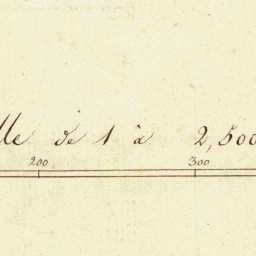 lle de 1 à 2,500
200 300